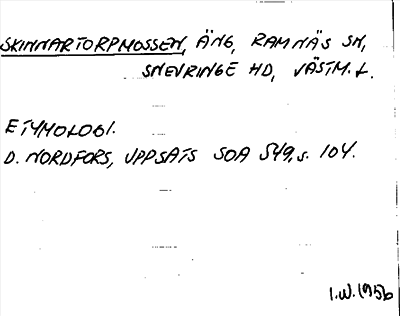 SKINNARTORPMOSSEN, ÄNG, RAMNÄS SN,
SNEVRINGE HD, VÄSTM. L.
ETYMOLOGI.
D. NORDFORS, UPPSATS SOA 549, s. 104.
I.W. 1956